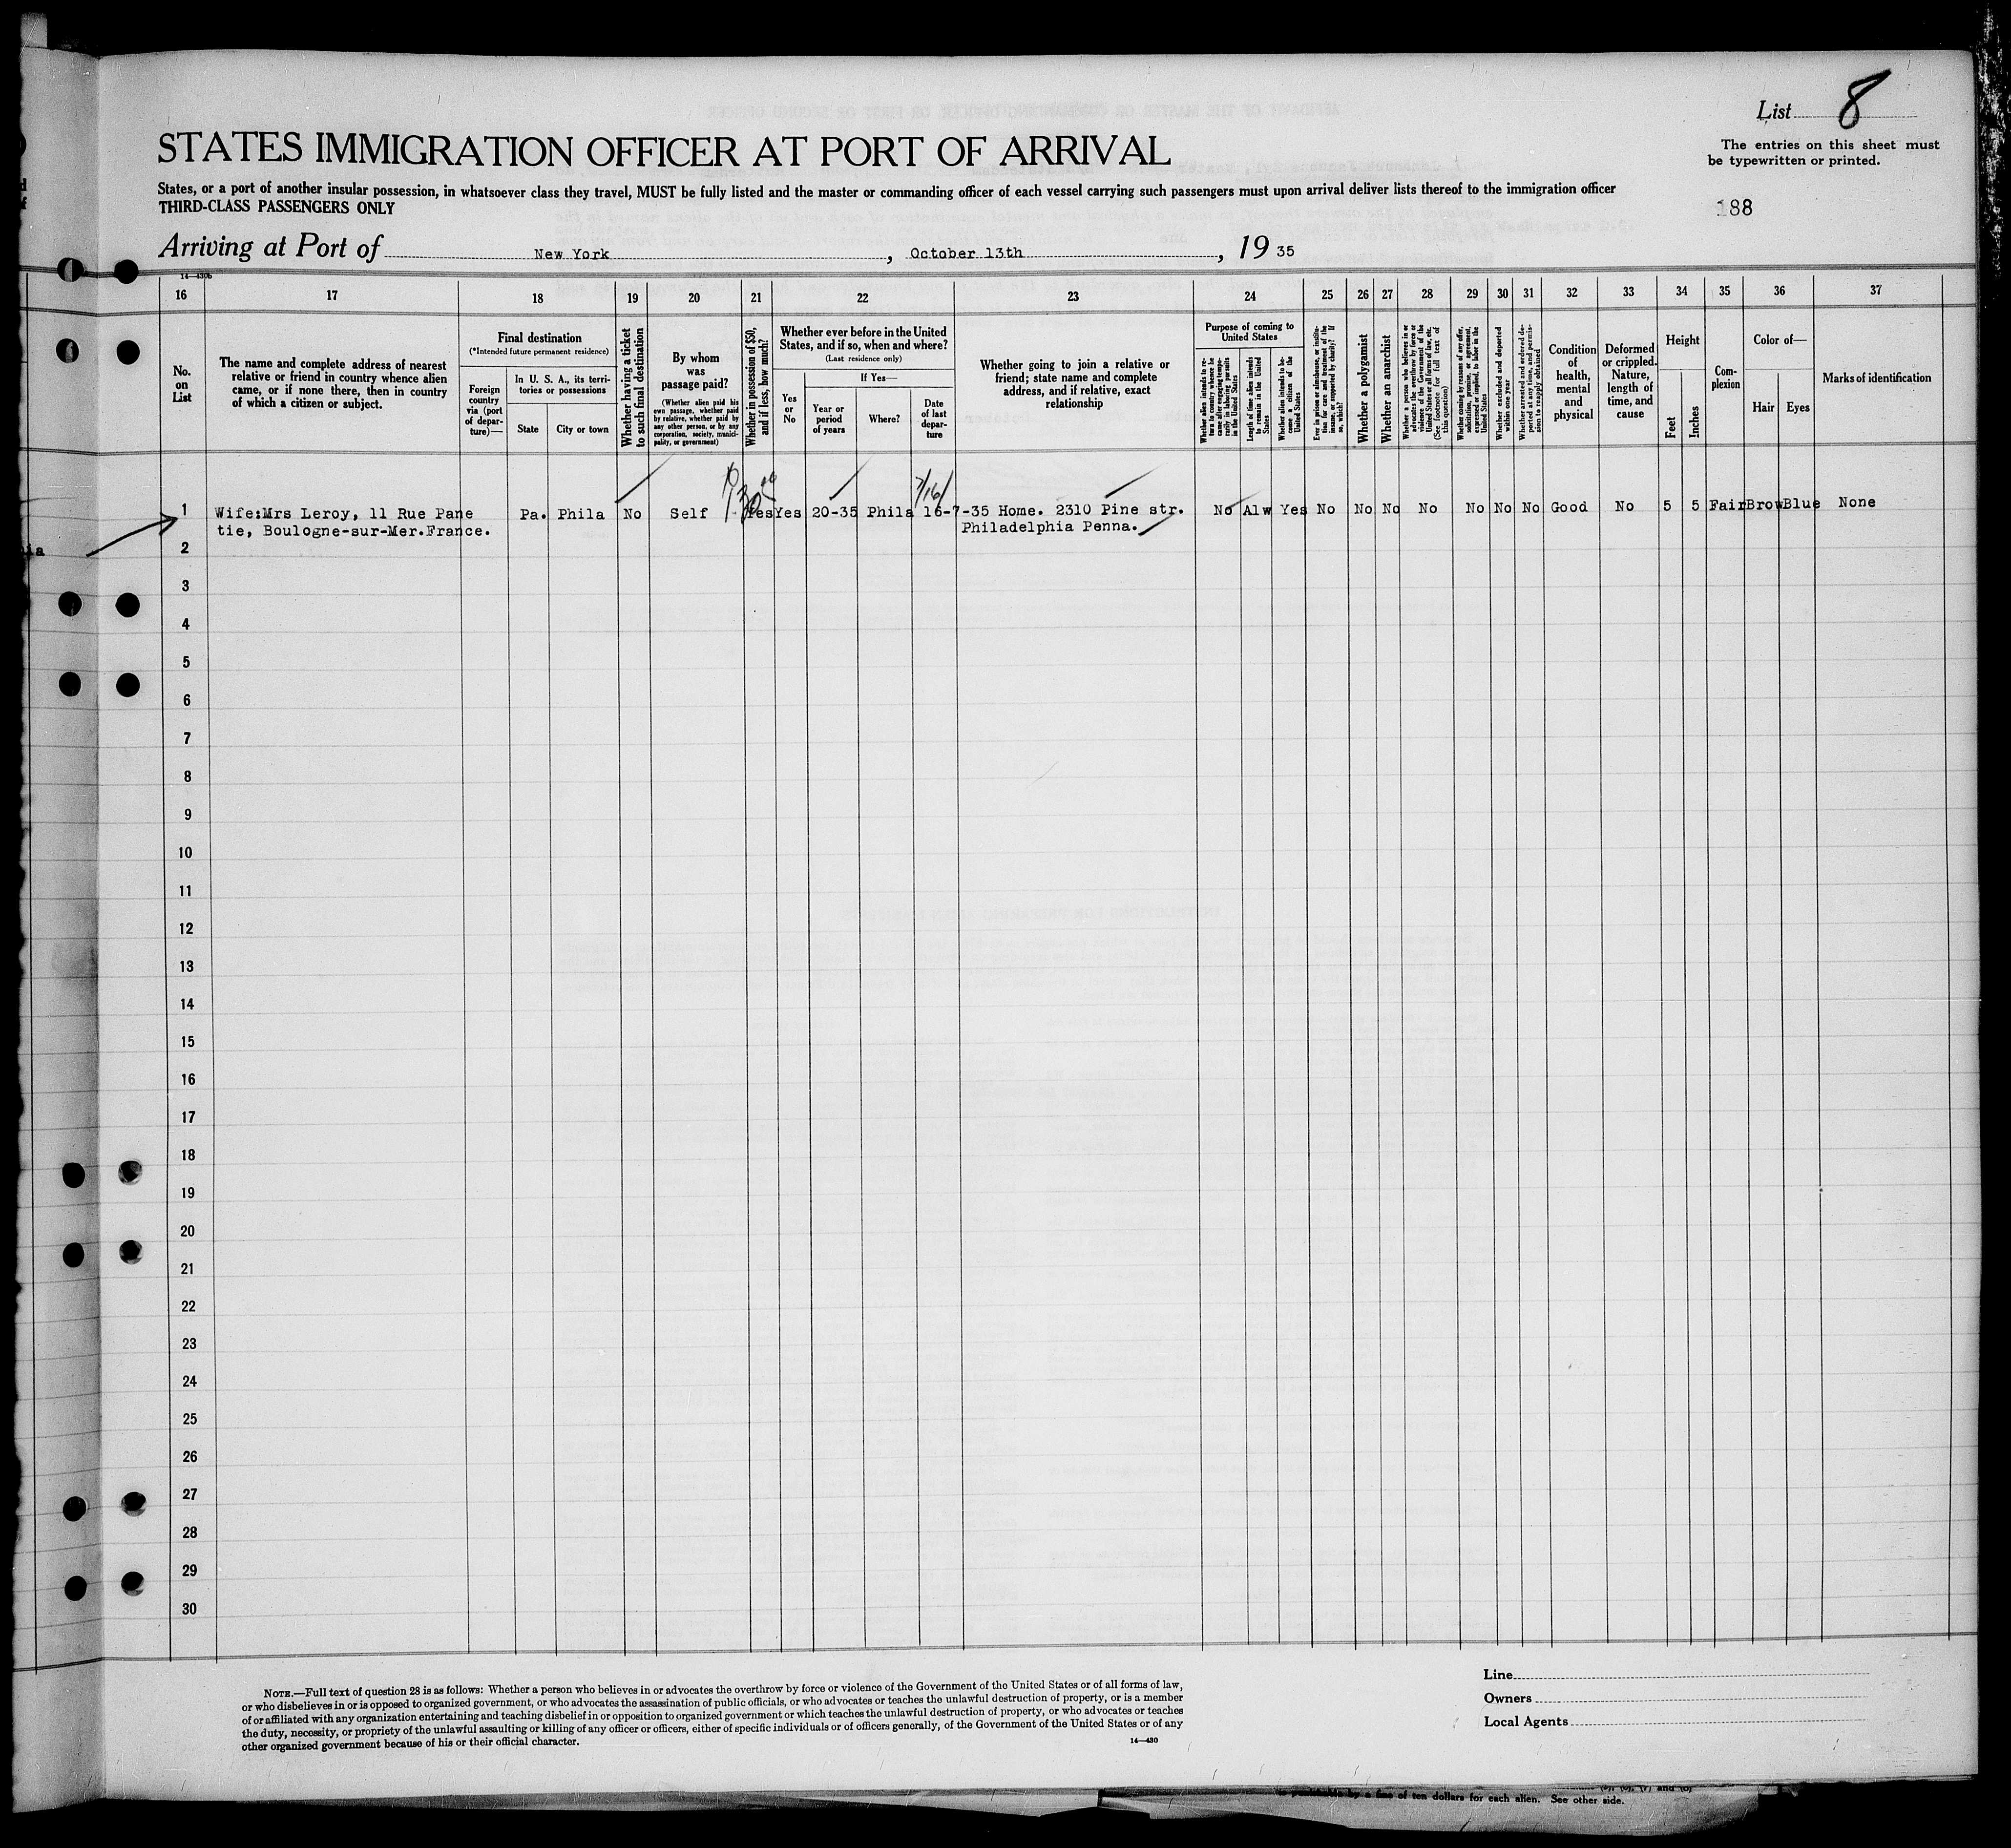 List 8
The entries on this sheet must
be typewritten or printed.
188
STATES IMMIGRATION OFFICER AT PORT OF ARRIVAL
States, or a port of another insular possession, in whatsoever class they travel, MUST be fully listed and the master or commanding officer of each vessel carrying such passengers must upon arrival deliver lists thereof to the immigration officer
THIRD-CLASS PASSENGERS ONLY
Arriving at Port of New York, October 13th, 1935
14—430b
16 17 18 19 20 21 22 23 24 25 26 27 28 29 30 31 32 33 34 35 36 37
No.
on
List
The name and complete address of nearest
relative or friend in country whence alien
came, or if none there, then in country
of which a citizen or subject.
Final destination
(*Intended future permanent residence)
Foreign
country
via (port
of depar-
ture)—
In U. S. A., its terri-
tories or possessions
State
City or town
Whether having a ticket
to such final destination
By whom
was
passage paid?
(Whether alien paid his
own passage, whether paid
by relative, whether paid by
any other person, or by any
corporation, society, munici-
pality, or government)
Whether in possession of $50,
and if less, how much?
Whether ever before in the United
States, and if so, when and where?
(Last residence only)
Yes
or
No
If Yes—
Year or
period
of years
Where?
Date
of last
depar-
ture
Whether going to join a relative or
friend; state name and complete
address, and if relative, exact
relationship
Purpose of coming to
United States
Whether alien intends to re-
turn to country whence he
came after engaging tempo-
rarily in laboring pursuits
in the United States
Length of time alien intends
to remain in the United
States
Whether alien intends to be-
come a citizen of the
United States
Ever in prison or almshouse, or institu-
tion for care and treatment of the
insane, or supported by charity? If
so, which?
Whether a polygamist
Whether an anarchist
Whether a person who believes in or
advocates the overthrow by force or
violence of the Government of the
United States or all forms of law, etc.
(See footnote for full text of
this question)
Whether coming by reasons of any offer,
solicitation, promise, or agreement,
expressed or implied, to labor in the
United States
Whether excluded and deported
within one year
Whether arrested and ordered de-
ported at any time, and permis-
sion to reapply obtained
Condition
of
health,
mental
and
physical
Deformed
or crippled.
Nature,
length of
time, and
cause
Height
Feet
Inches
Com-
plexion
Color of—
Hair
Eyes
Marks of identification
7/16/
1 Wife:Mrs Leroy, 11 Rue Pane Pa. Phila No Self Yes Yes 20-35 Phila 16-7-35 Home. 2310 Pine str. No Alw Yes No No No No No No No Good No 5 5 Fair Brow Blue None
tie, Boulogne-sur-Mer.France. Philadelphia Penna.
ia
2
3
4
5
6
7
8
9
10
11
12
13
14
15
16
17
18
19
20
21
22
23
24
25
26
27
28
29
30
NOTE.—Full text of question 28 is as follows: Whether a person who believes in or advocates the overthrow by force or violence of the Government of the United States or of all forms of law,
or who disbelieves in or is opposed to organized government, or who advocates the assassination of public officials, or who advocates or teaches the unlawful destruction of property, or is a member
of or affiliated with any organization entertaining and teaching disbelief in or opposition to organized government or which teaches the unlawful destruction of property, or who advocates or teaches
the duty, necessity, or propriety of the unlawful assaulting or killing of any officer or officers, either of specific individuals or of officers generally, of the Government of the United States or of any
other organized government because of his or their official character.
14—430
Line
Owners
Local Agents
by a fine of ten dollars for each alien. See other side.